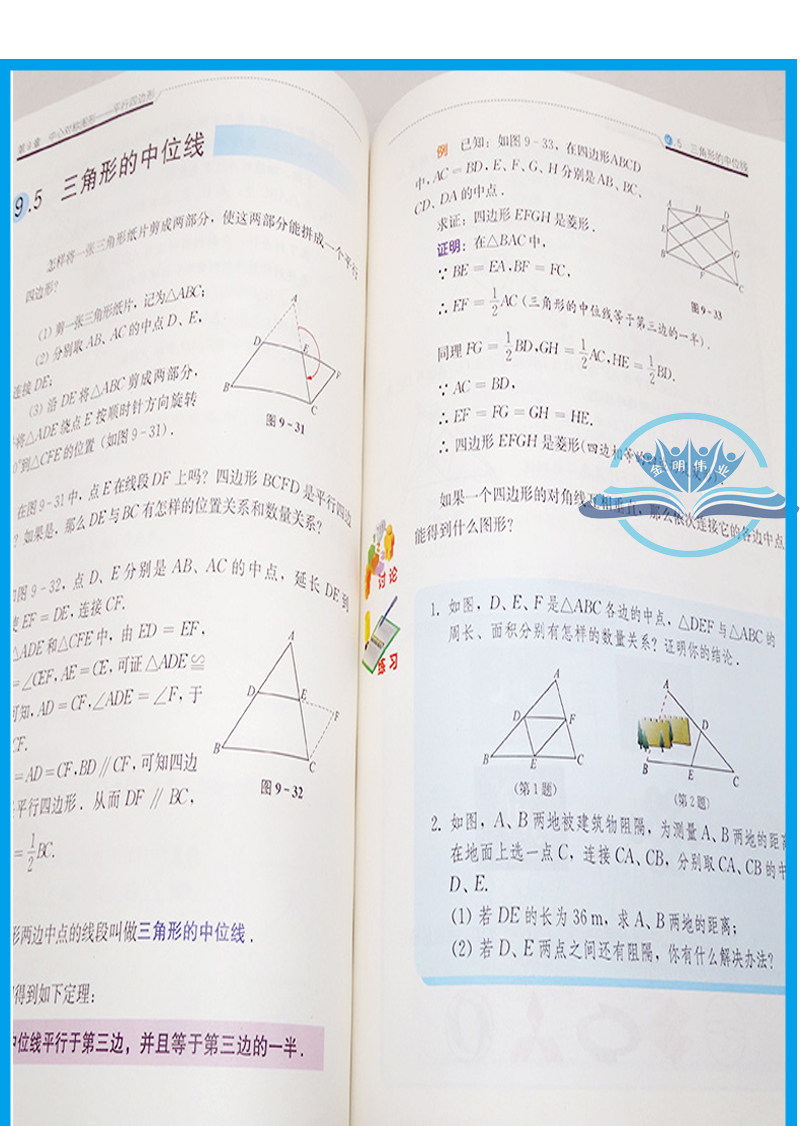 第9章 中心对称图形——平行四边形
9.5 三角形的中位线
怎样将一张三角形纸片剪成两部分，使这两部分能拼成一个平行
四边形？
(1) 剪一张三角形纸片，记为△ABC；
(2) 分别取 AB、AC 的中点 D、E，
连接 DE；
(3) 沿 DE 将△ABC 剪成两部分，
将△ADE 绕点 E 按顺时针方向旋转
到△CFE的位置 (如图 9-31).
A
D
E
F
B
C
图 9-31
在图 9-31 中，点 E 在线段 DF 上吗？四边形 BCFD 是平行四边
？如果是，那么 DE 与 BC 有怎样的位置关系和数量关系？
图 9-32，点 D、E 分别是 AB、AC 的中点，延长 DE 到
EF = DE，连接 CF.
△ADE 和△CFE 中，由 ED = EF，
= ∠CEF，AE = CE，可证 △ADE ≌
可知，AD = CF，∠ADE = ∠F，于
CF.
= AD = CF，BD ∥ CF，可知四边
平行四边形．从而 DF ∥ BC，
= 1/2 BC.
A
D
E
F
B
C
图 9-32
形两边中点的线段叫做三角形的中位线．
得到如下定理：
中位线平行于第三边，并且等于第三边的一半．
.5 三角形的中位线
例 已知：如图 9-33，在四边形ABCD
中，AC = BD，E、F、G、H 分别是AB、BC、
CD、DA 的中点．
求证：四边形 EFGH 是菱形．
证明：在△BAC 中，
∵ BE = EA，BF = FC，
∴ EF = 1/2 AC (三角形的中位线等于第三边的一半)．
同理 FG = 1/2 BD，GH = 1/2 AC，HE = 1/2 BD.
∵ AC = BD，
∴ EF = FG = GH = HE.
∴ 四边形 EFGH 是菱形(四边相等的
A
H
D
E
G
B
F
C
图 9-33
金明伟业
如果一个四边形的对角线互相垂直，那么依次连接它的各边中点
能得到什么图形？
讨论
练习
1. 如图，D、E、F 是△ABC 各边的中点，△DEF 与△ABC 的
周长、面积分别有怎样的数量关系？证明你的结论．
A
D
F
B
E
C
(第 1 题)
A
D
B
E
C
(第 2 题)
2. 如图，A、B 两地被建筑物阻隔，为测量 A、B 两地的距离
在地面上选一点 C，连接 CA、CB，分别取 CA、CB 的中
D、E.
(1) 若 DE 的长为 36 m，求 A、B 两地的距离；
(2) 若 D、E 两点之间还有阻隔，你有什么解决办法？